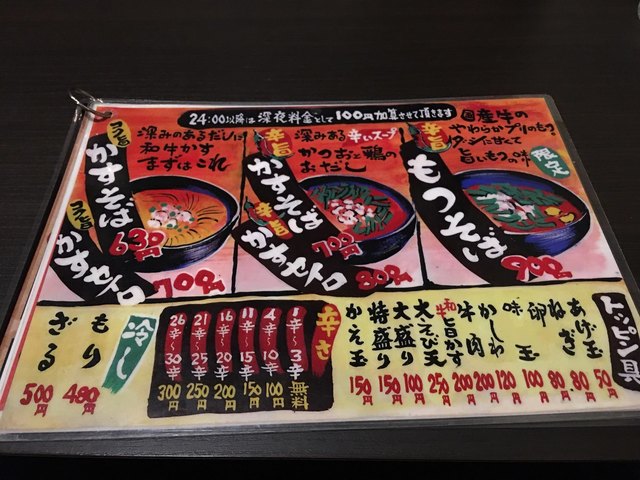 24:00以降は深夜料金として100円加算させて頂きます
コク旨
深みのあるだしに
和牛かす
まずはこれ
かすそば
630円
コク旨
かすセトロ
700円
辛旨
深みある辛いスープ
かつおと鶏の
おだし
かすそば
700円
辛旨
かすセトロ
800円
辛旨
国産牛の
やわらかプリのもつ
旨いもつの味
限定
もつそば
900円
冷し
もり
480円
ざる
500円
辛さ
1辛〜3辛 無料
4辛〜10辛 100円
11辛〜15辛 150円
16辛〜20辛 200円
21辛〜25辛 250円
26辛〜30辛 300円
トッピン具
あげ玉 50円
ねぎ 80円
卵 80円
味玉 100円
かしわ 120円
牛肉 200円
和牛旨かす 200円
大えび天 250円
大盛り 100円
特盛り 150円
かえ玉 150円